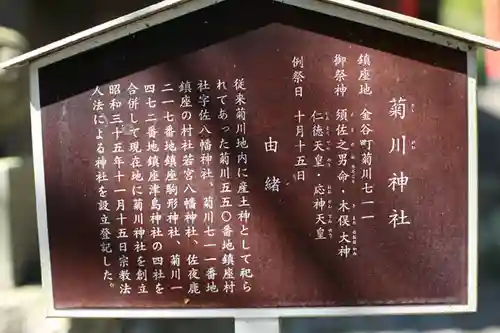 菊川神社
きく がわ
鎮座地 金谷町菊川七一一
御祭神 須佐之男命・木俣大神
仁徳天皇・応神天皇
例祭日 十月十五日
由緒
従来菊川地内に産土神として祀ら
れてあった菊川五五〇番地鎮座村
社宇佐八幡神社、菊川七一一番地
鎮座の村社若宮八幡神社、佐夜鹿
二一七番地鎮座駒形神社、菊川一
四七二番地鎮座津島神社の四社を
合併して現在地に菊川神社を創立
昭和三十五年十一月十五日宗教法
人法による神社を設立登記した。